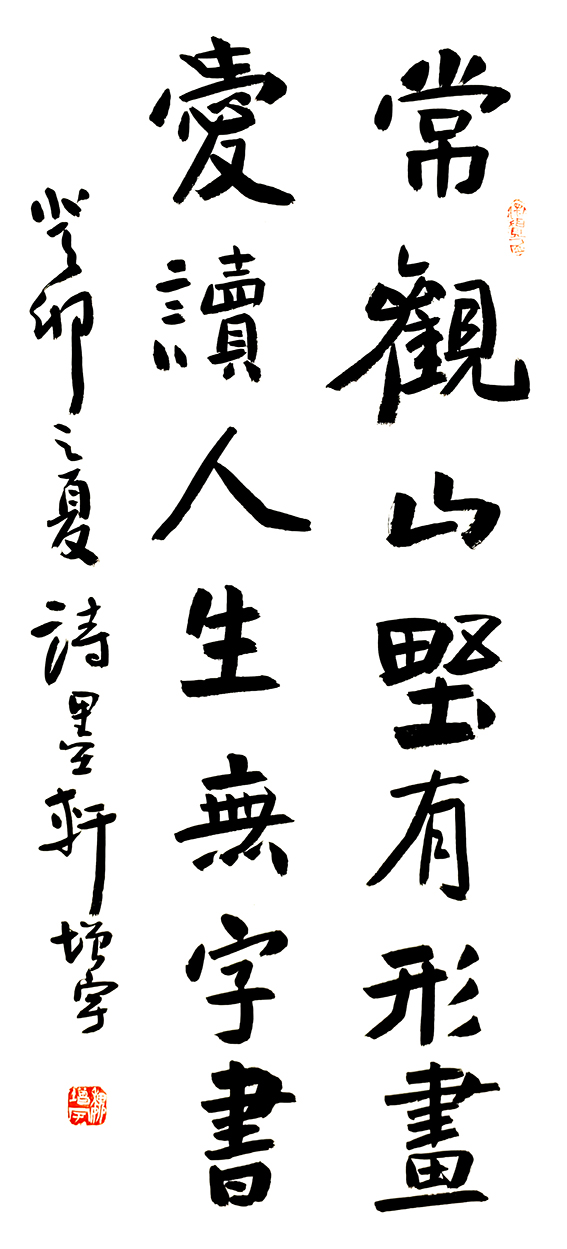 常觀山野有形畫
愛讀人生無字書
癸卯之夏詩墨軒增宇